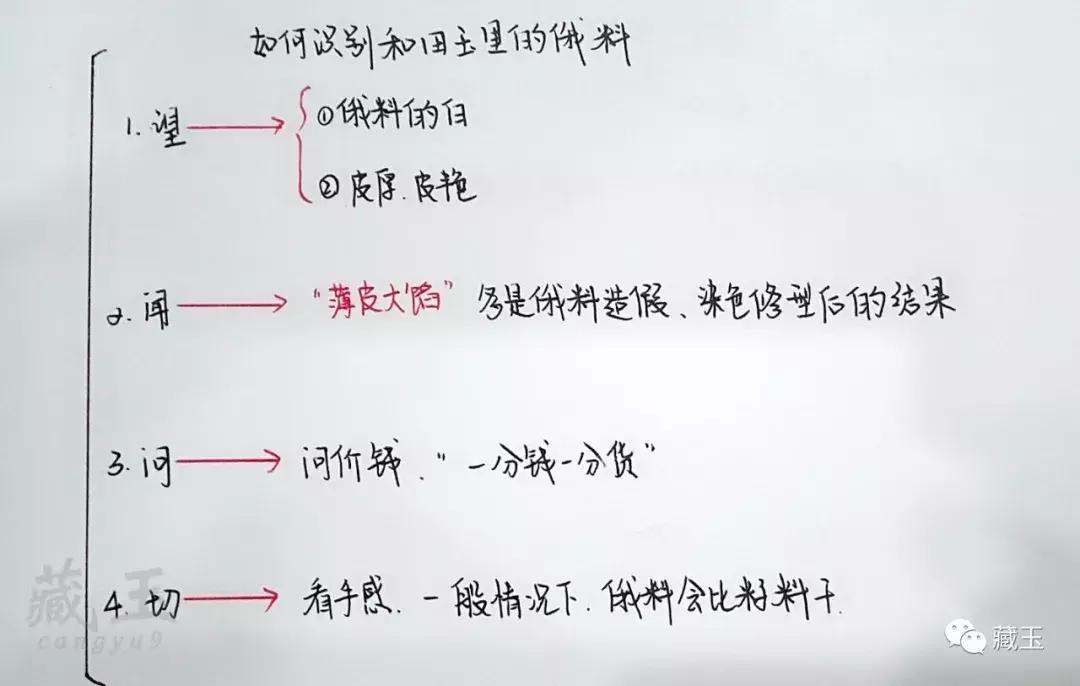 如何识别和田玉里的俄料
1. 望
①俄料的白
②皮厚.皮艳
2. 闻 "薄皮大馅" 多是俄料造假、染色修型后的结果
3. 问 问价钱."一分钱一分货"
4. 切 看手感.一般情况下.俄料会比籽料干.
藏玉
cangyu9
藏玉